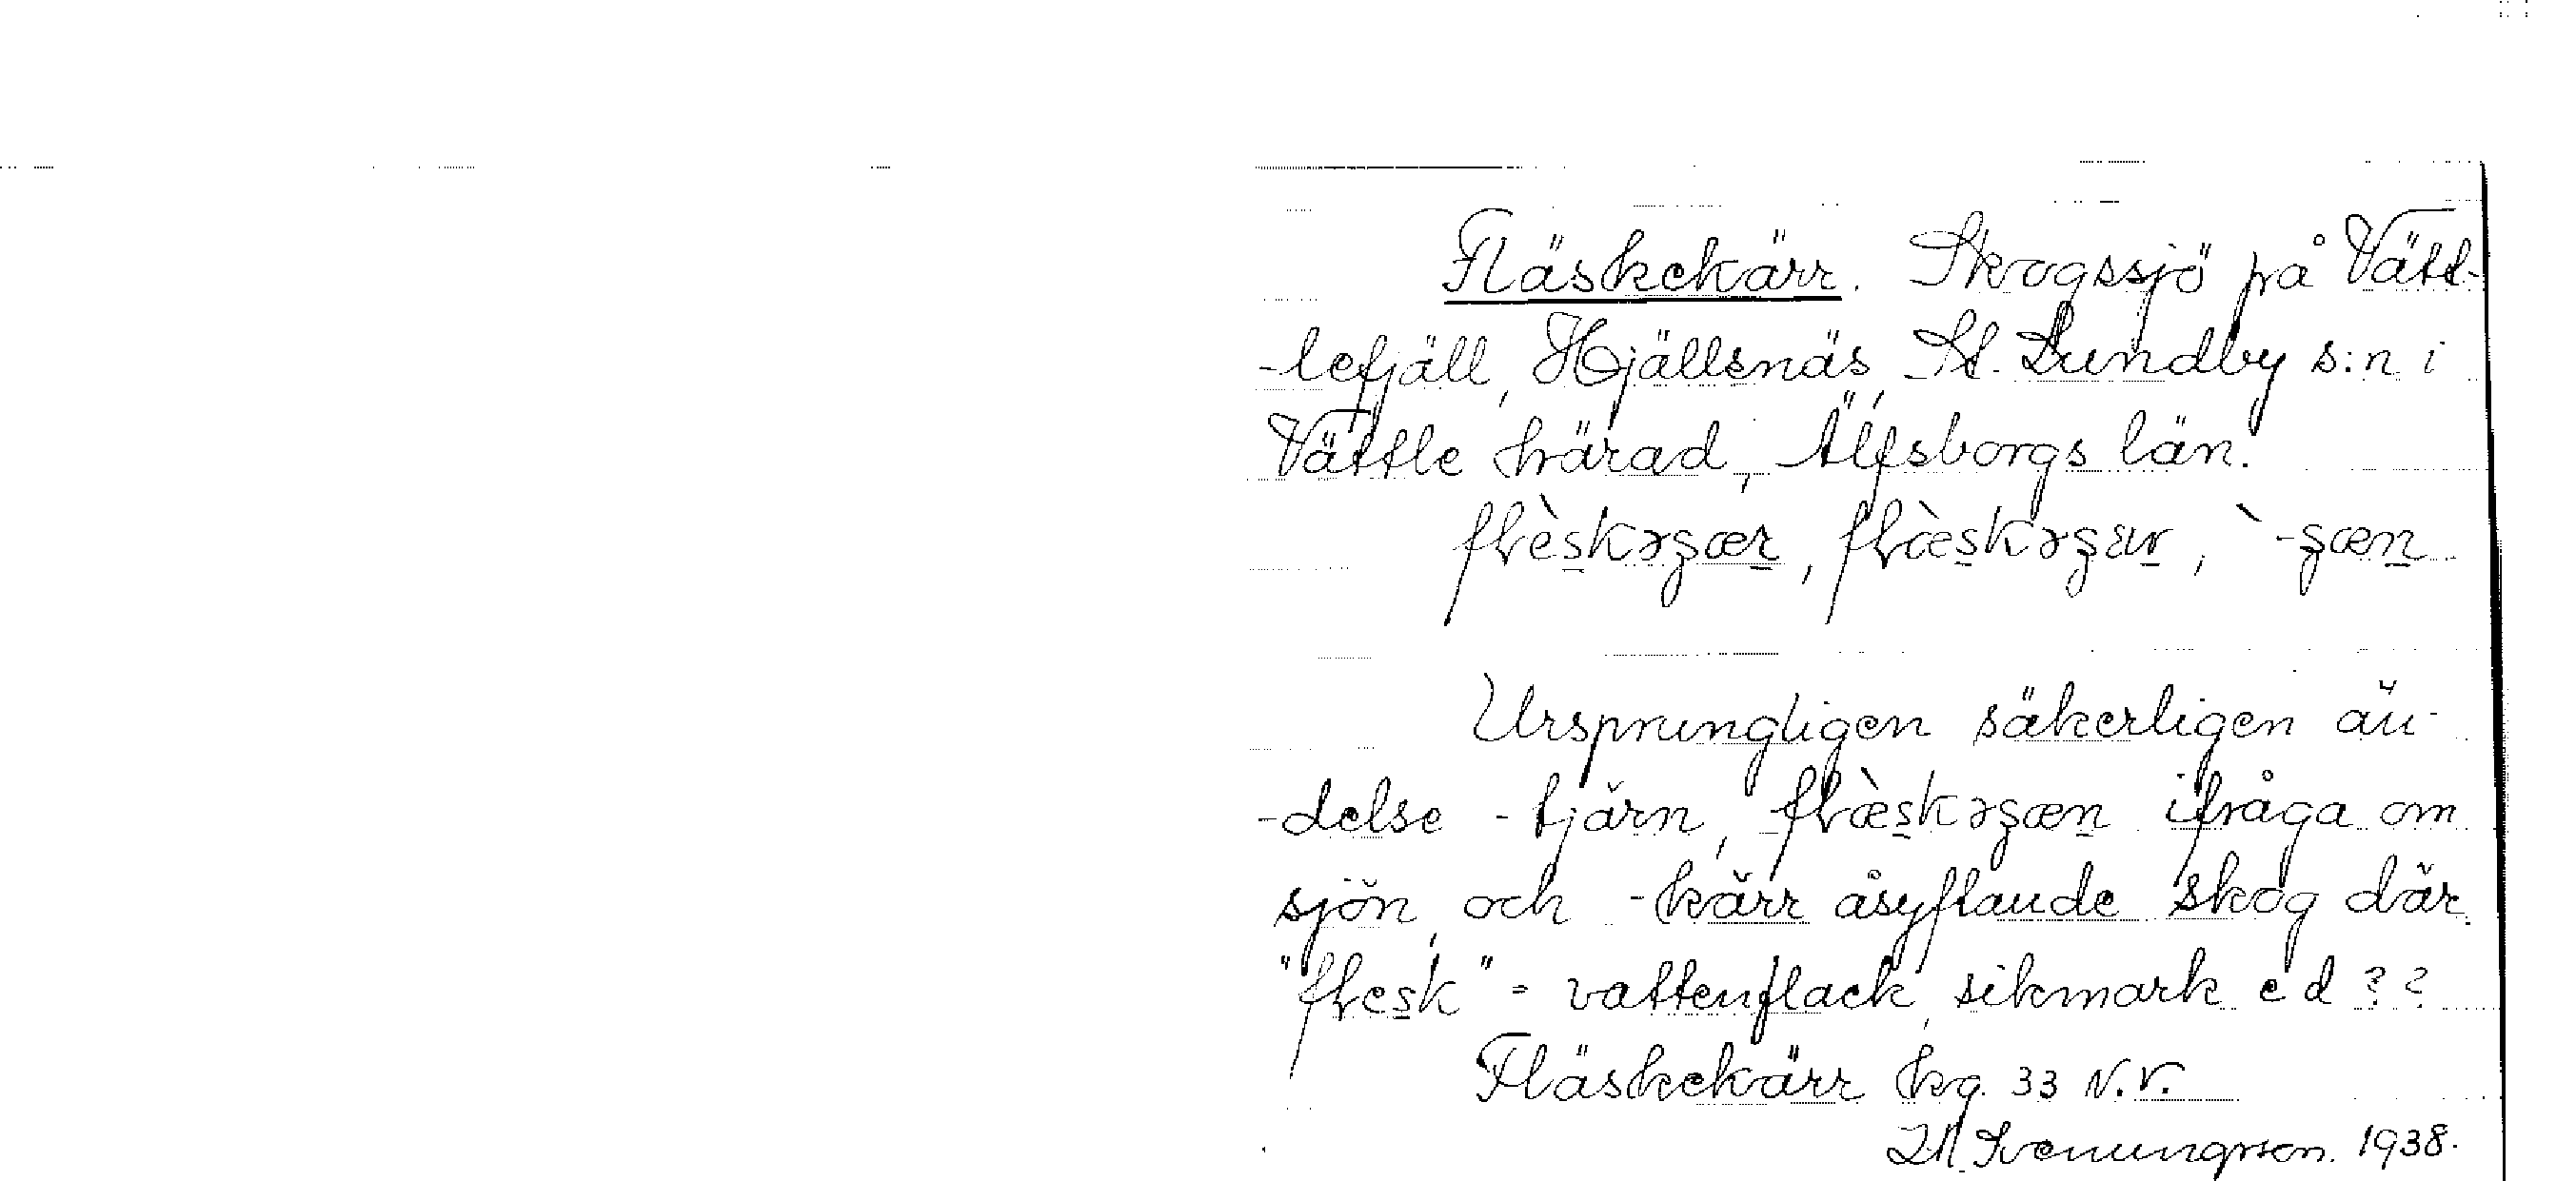 Fläskekärr. Skogssjö på Vätt-
-lefjäll, Hjällsnäs, St. Lundby s:n i
Vättle härad, Älfsborgs län.
Ursprungligen säkerligen än-
-delse -tjärn, ifråga om
sjön, och -kärr åsyftande skog där.
"flesk" = vattenflack, sikmark e d ??
Fläskekärr kg. 33 N.V.
1938.